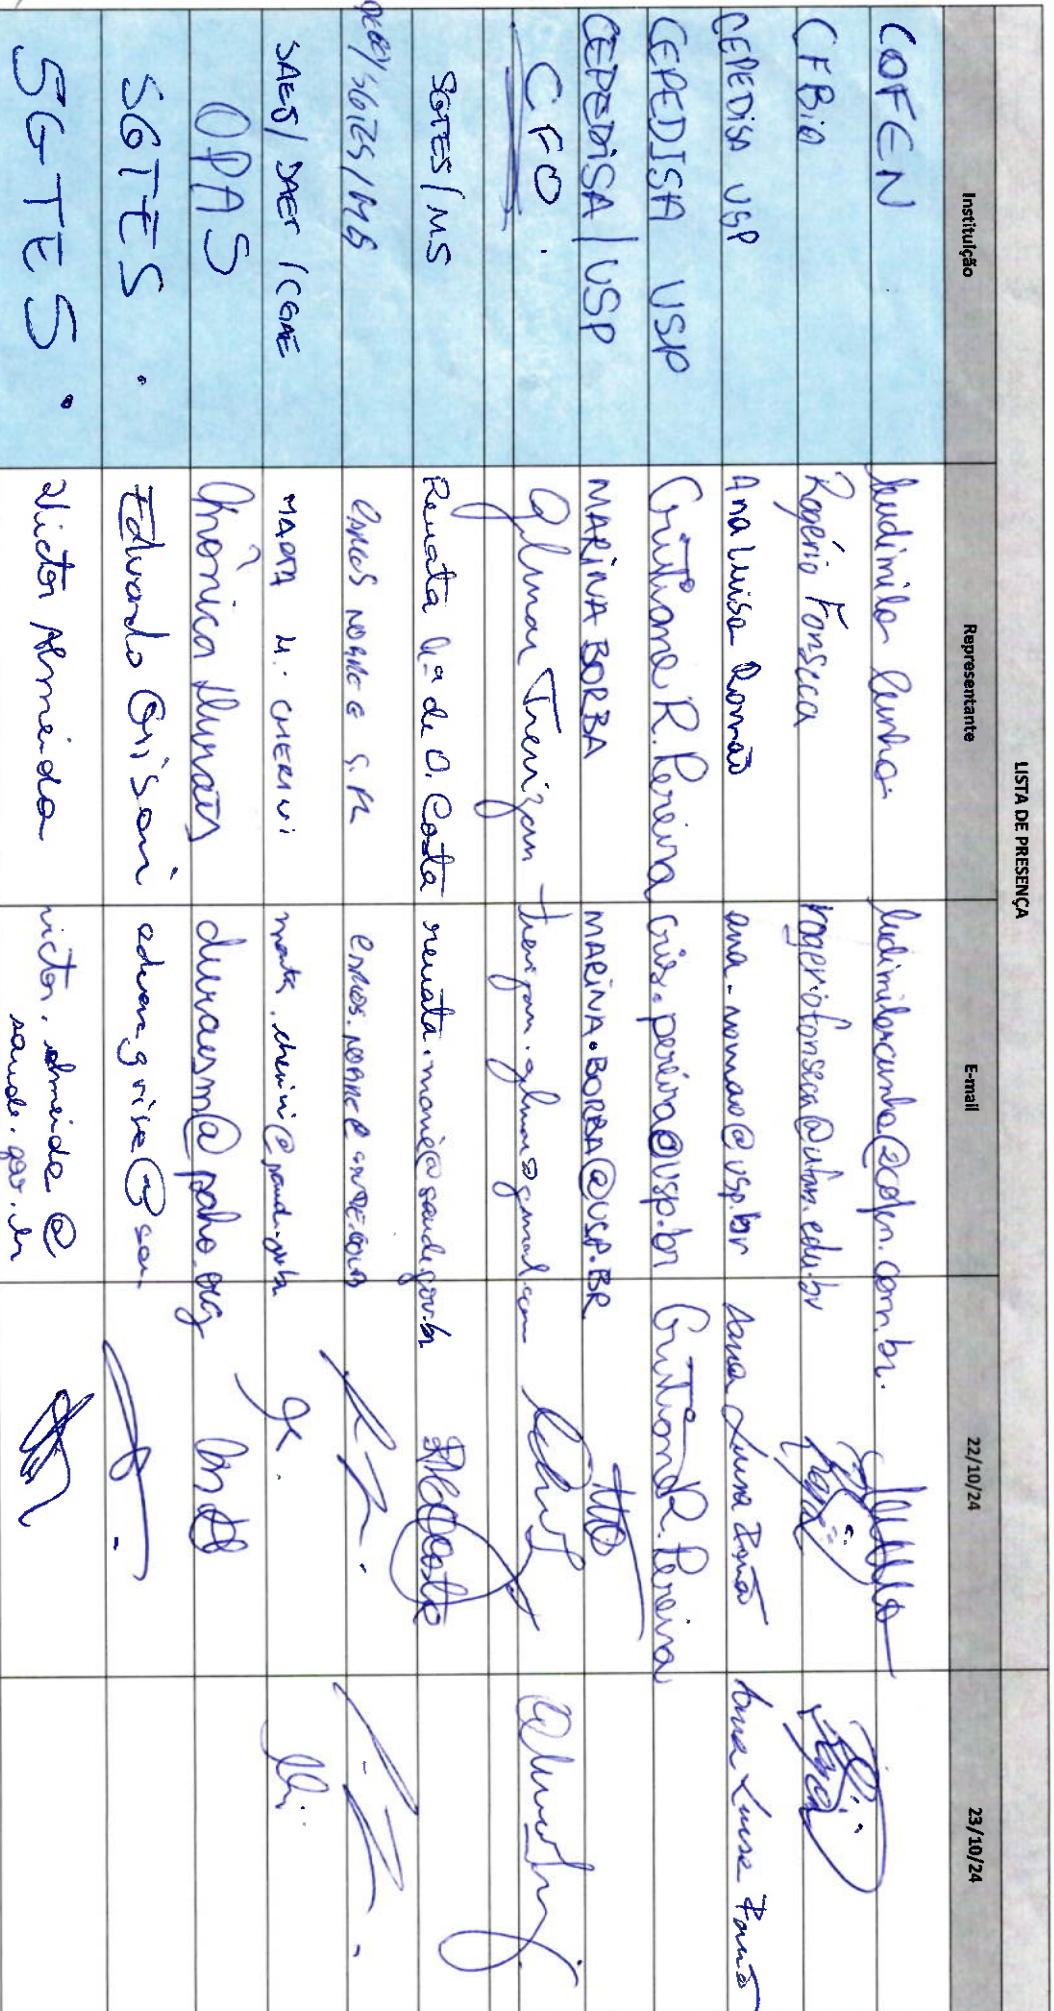 LISTA DE PRESENÇA
Instituição Representante E-mail 22/10/24 23/10/24
COFEN Ludimila Cunha ludimilacunha@cofen.com.br.
CFBio Rogério Fonseca rogeriofonseca@ufam.edu.br
CEPEDISA USP Ana Luisa Romão ana-romao@usp.br Ana Luisa Romão Ana Luisa Romão
CEPEDISA USP Cristiane R. Pereira cris.pereira@usp.br Cristiane R. Pereira
CEPEDISA/USP MARINA BORBA MARINA.BORBA@USP.BR
CFO. Gilmar Trevizan trevizan.gilmar@gmail.com
SGTES/MS Renata Mª de O. Costa renata.maria@saude.gov.br RMOCosta
/SGTES/MS
SAES/DAET/CGAE MARTA M. CHERINI
OPAS Mônica Durães duraesm@paho.org
SGTES. Eduardo Grisoni
SGTES. Victor Almeida victor.almeida@
saude.gov.br